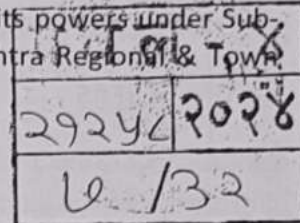 its powers under Sub-
ntra Regional & Town
२१२५८ २०२४
७ /३२